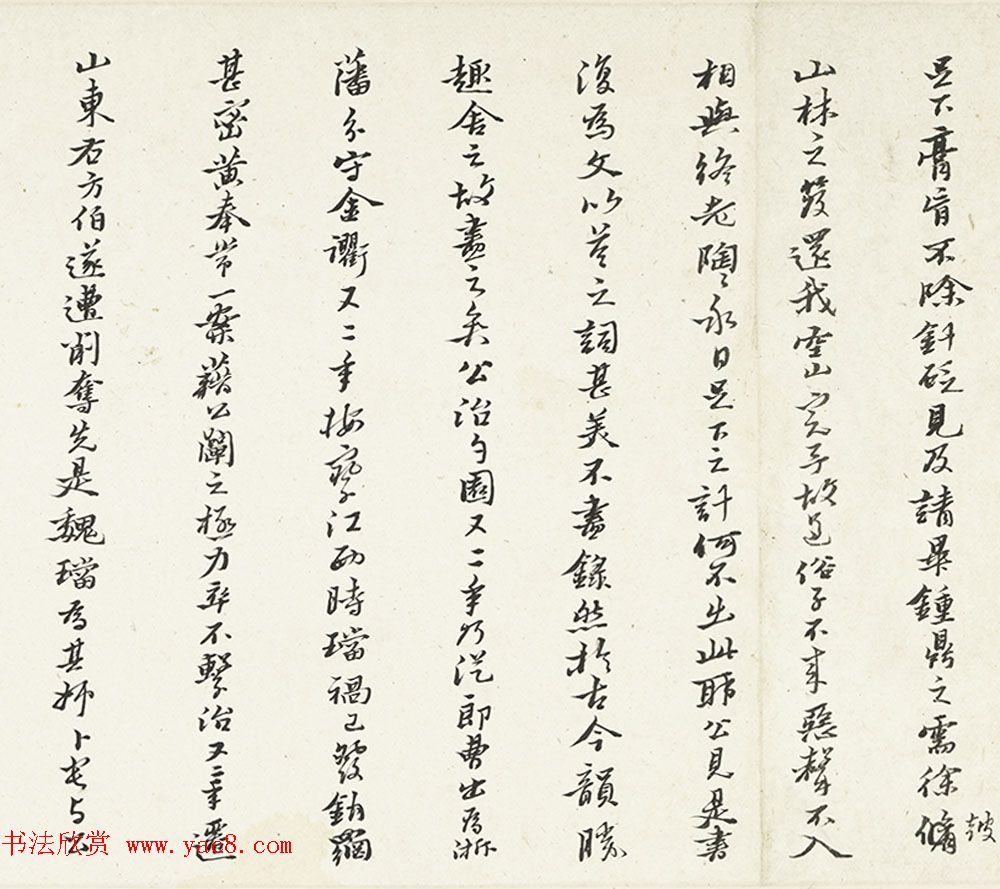 足下膏肓不除針砭見及請畢鍾鼎之需徐脩
山林之簭還我空山完予故吾俗子不來惡聲不入
相與終老陶陶永日足下之計何不出此耶公見是書
復為文以答之詞甚美不盡錄然於古今韻勝
趣舍之故盡之矣公治勺園又二年乃從郎曹出為浙
藩分守金衢又二年按察江西時璫禍已發鉤羅
甚密黃奉常一案藉公闡之極力卒不繫治又二年遷
山東右方伯遂遭削奪先是魏璫為其姊卜宅与公
书法欣赏 www.yac8.com